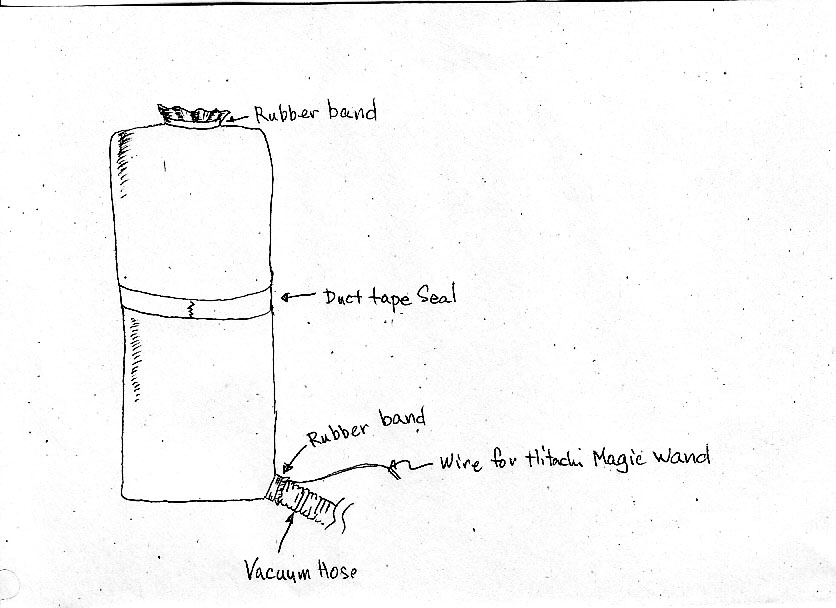 Rubber band
Duct tape Seal
Rubber band
Wire for Hitachi Magic Wand
Vacuum Hose